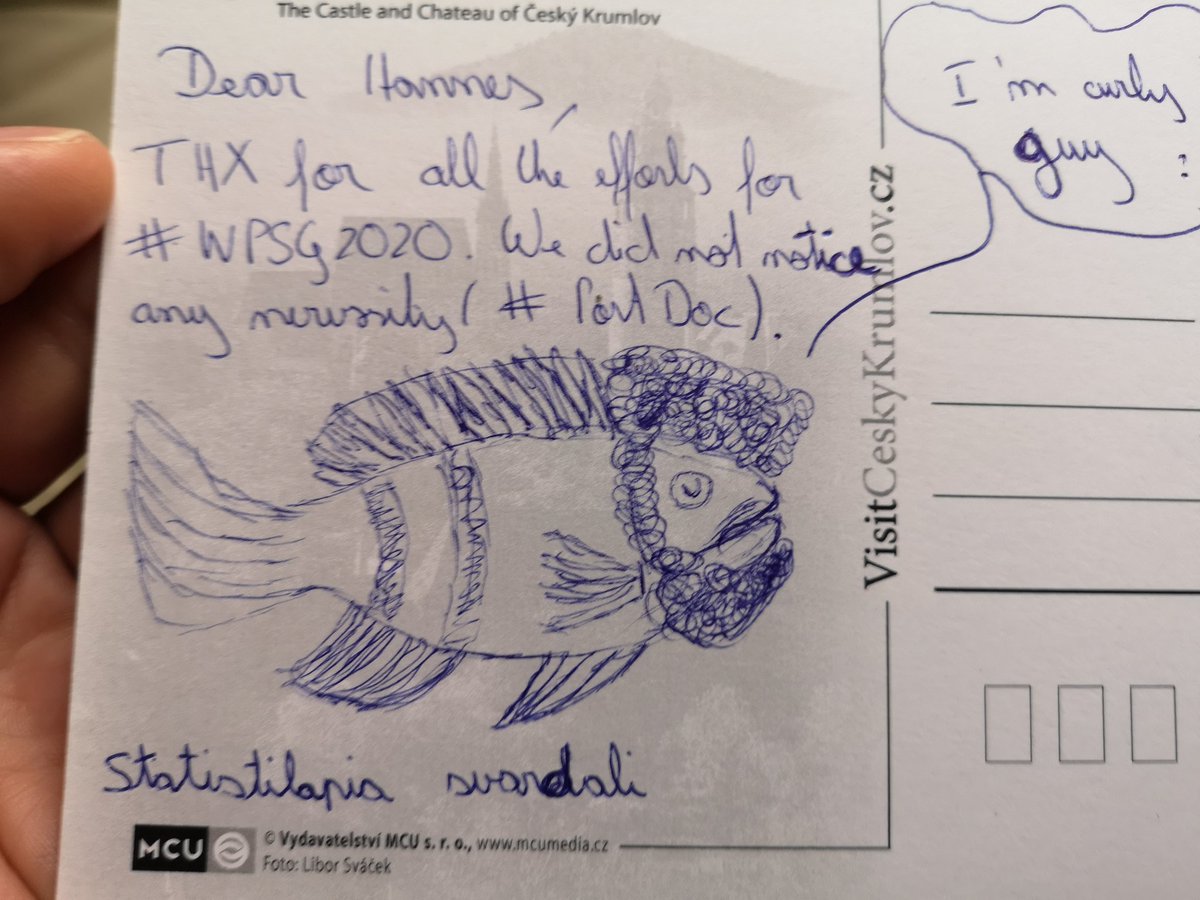 The Castle and Chateau of Český Krumlov
Dear Hannes,
THX for all the efforts for
#WPSG2020. We did not notice
any nervosity (#PostDoc).
I'm curly
guy :
VisitCeskyKrumlov.cz
Statistilapia svardali
MCU
© Vydavatelství MCU s. r. o., www.mcumedia.cz
Foto: Libor Sváček